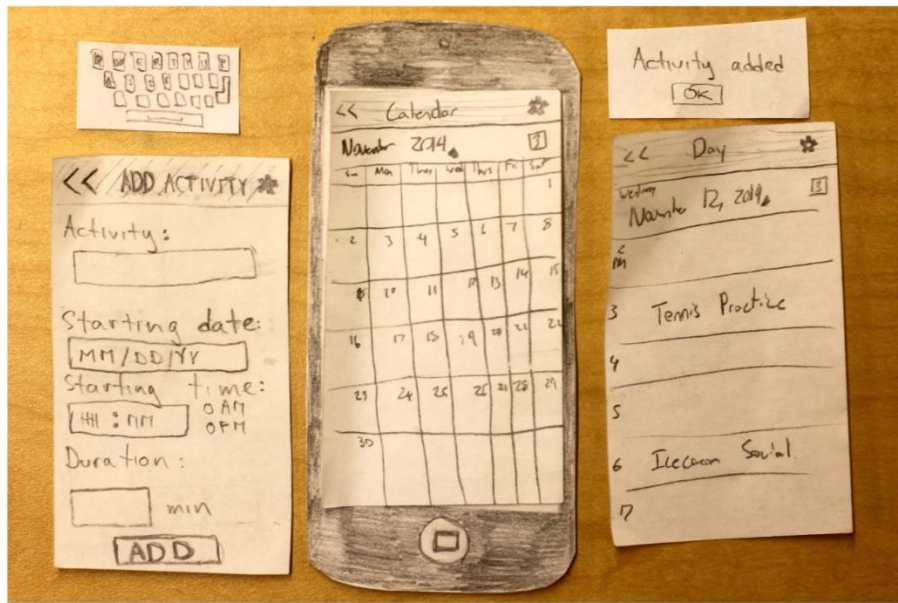 << ADD ACTIVITY
Activity:
Starting date:
MM/DD/YY
Starting time:
HH : MM
O AM
O PM
Duration:
min
ADD
<< Calendar
November 2014
Mon Wed Fri Sat
1
2 3 4 5 6 7 8
10 11 12 13 14 15
16 17 18 19 20 21 22
23 24 28 29
30
Activity added
OK
<< Day
Wednesday
November 12, 2014
2
PM
3 Tennis Practice
4
5
6 Icecream Social
7